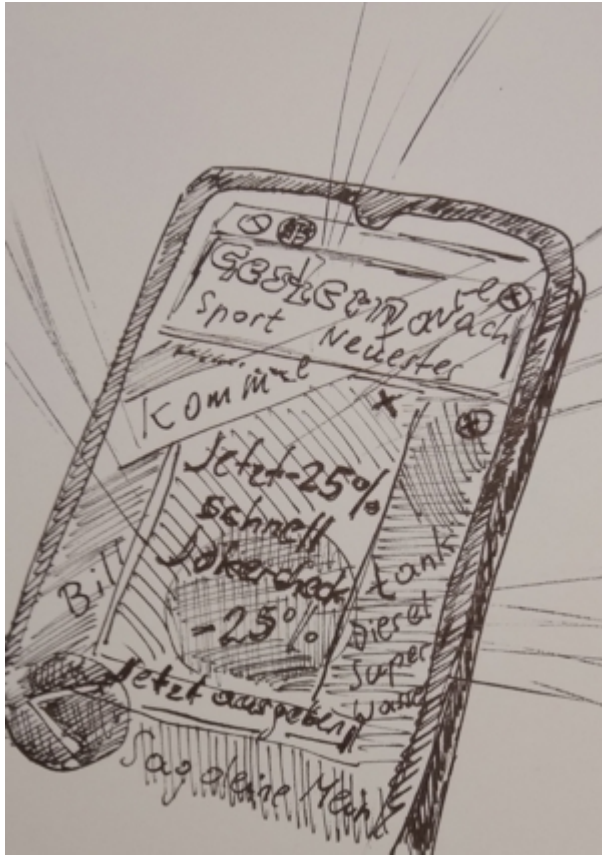 Sport Neuester
Komm
Jetzt -25%
schnell
Jokercheck
-25%
Bill
tank
Diesel
Super
Jetzt ausgeben!
Sag deine Mein